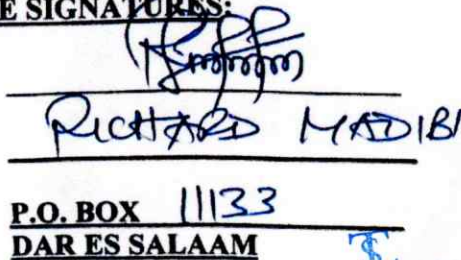 E SIGNATURES:
RICHARD MADIBI
P.O. BOX 11133
DAR ES SALAAM